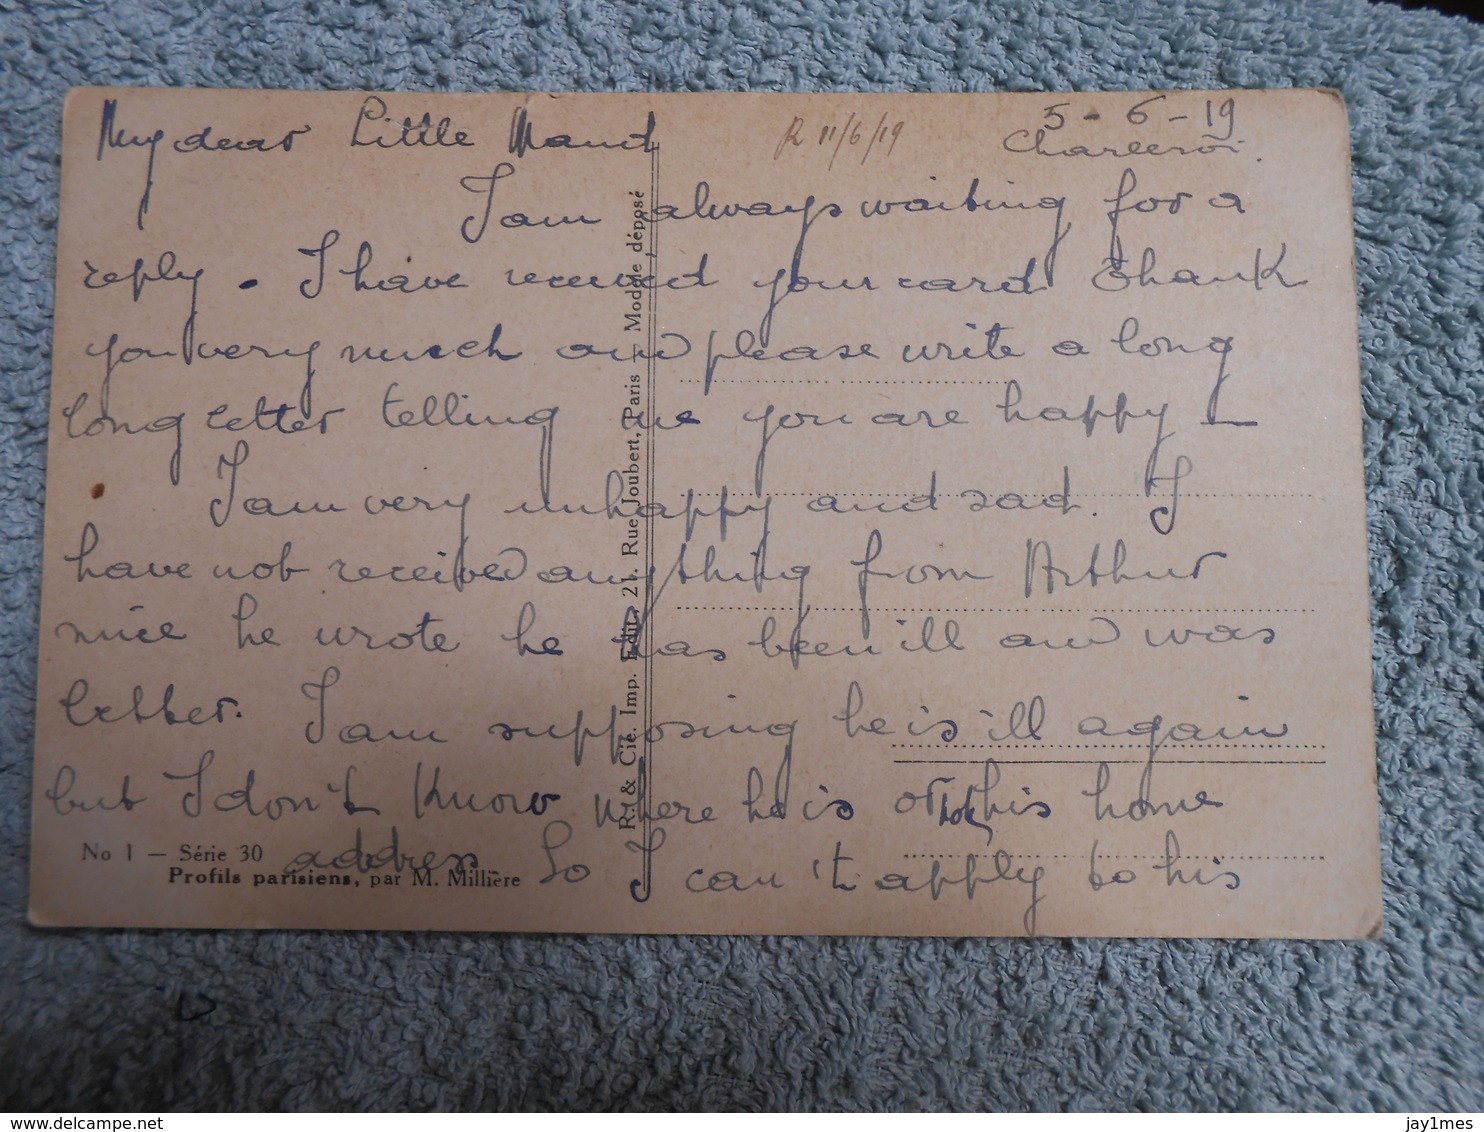 5-6-19
My dear Little Maud R 11/6/19 Charleroi.
I am always waiting for a
reply. I have received your card Thank
you very much and please write a long
long letter telling me you are happy -
I am very unhappy and sad. I
have not received anything from Arthur
since he wrote he has been ill and was
better. I am supposing he is ill again
but I don't know where he is or his home
address So I can't apply to his
No 1 — Série 30
Profils parisiens, par M. Millière
R. & Cie. Imp. Edit., 21, Rue Joubert, Paris — Modèle déposé
jay1mes
www.delcampe.net